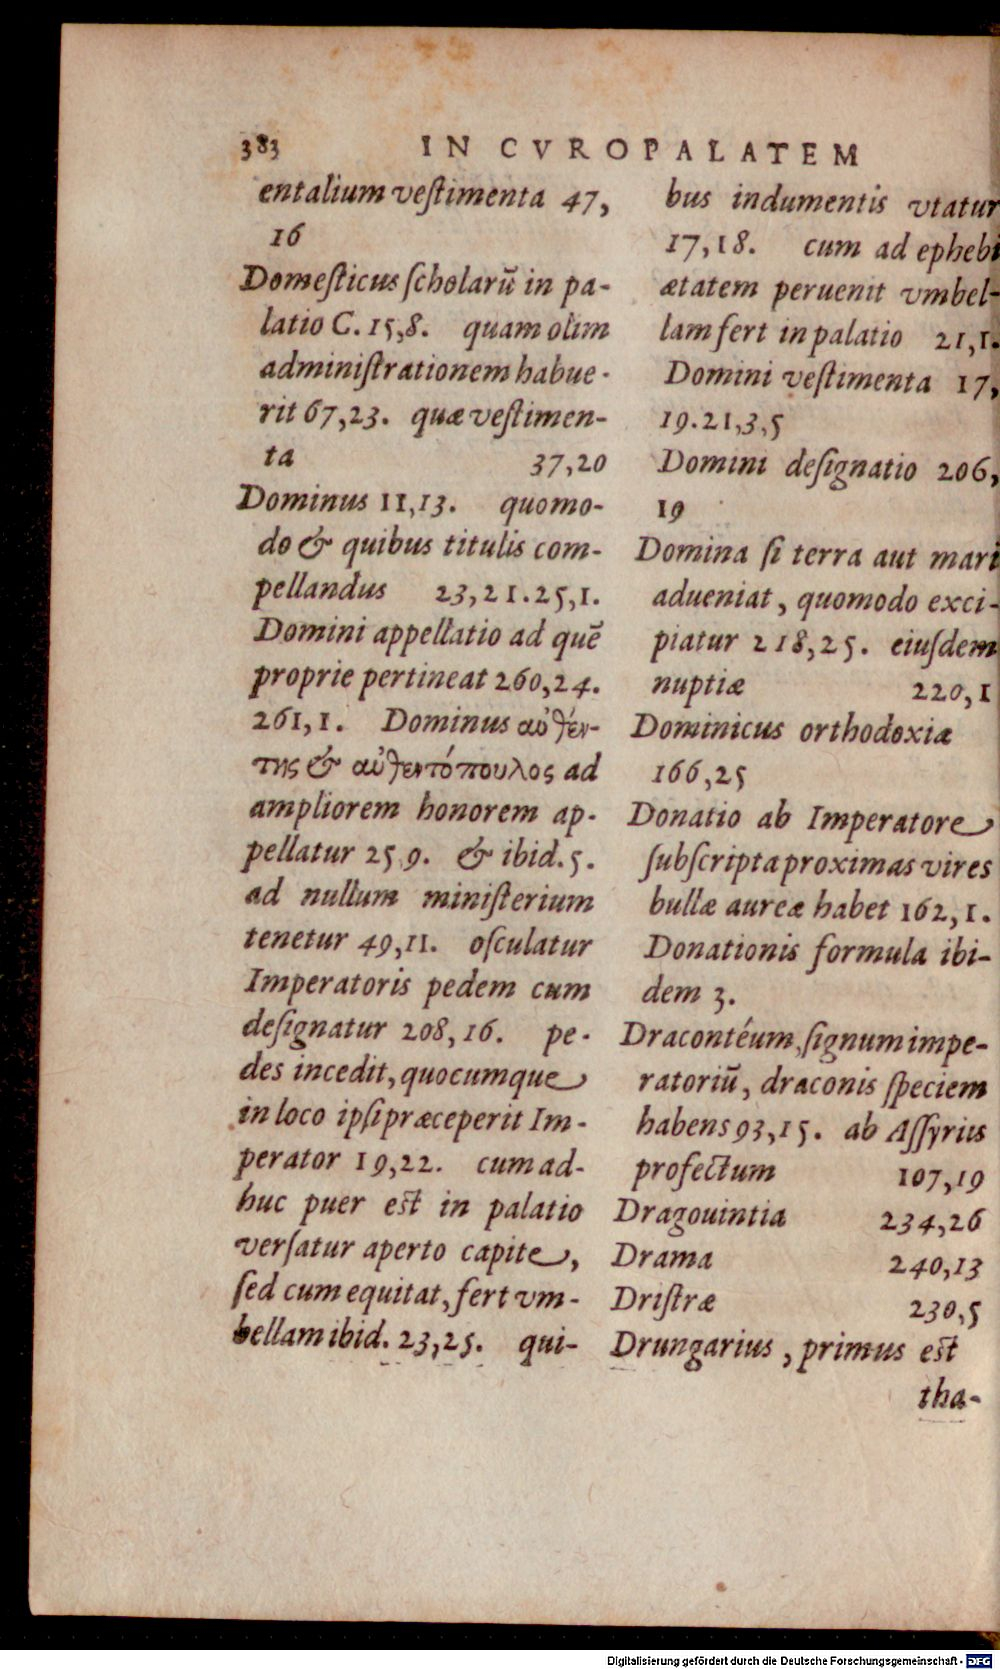 383 IN CVROPALATEM
entalium veſtimenta 47,
16
Domeſticus ſcholarũ in pa-
latio C. 15,8. quam olim
adminiſtrationem habue-
rit 67,23. quæ veſtimen-
ta 37,20
Dominus 11,13. quomo-
do & quibus titulis com-
pellandus 23,21.25,1.
Domini appellatio ad quẽ
proprie pertineat 260,24.
261,1. Dominus αὐθέν-
της & αὐθεντόπουλος ad
ampliorem honorem ap-
pellatur 25,9. & ibid. 5.
ad nullum miniſterium
tenetur 49,11. oſculatur
Imperatoris pedem cum
deſignatur 208,16. pe-
des incedit, quocumque
in loco ipſi præceperit Im-
perator 19,22. cum ad-
huc puer est in palatio
verſatur aperto capite,
ſed cum equitat, fert vm-
bellam ibid. 23,25. qui-
bus indumentis vtatur
17,18. cum ad ephebi
ætatem peruenit vmbel-
lam fert in palatio 21,1.
Domini veſtimenta 17,
19.21,3,5
Domini deſignatio 206,
19
Domina ſi terra aut mari
adueniat, quomodo exci-
piatur 218,25. eiuſdem
nuptiæ 220,1
Dominicus orthodoxiæ
166,25
Donatio ab Imperatore
ſubſcripta proximas vires
bullæ aureæ habet 162,1.
Donationis formula ibi-
dem 3.
Dracontéum, ſignum impe-
ratoriũ, draconis ſpeciem
habens 93,15. ab Aſſyriis
profectum 107,19
Dragouintia 234,26
Drama 240,13
Driſtræ 230,5
Drungarius, primus est
tha-
Digitalisierung gefördert durch die Deutsche Forschungsgemeinschaft - DFG